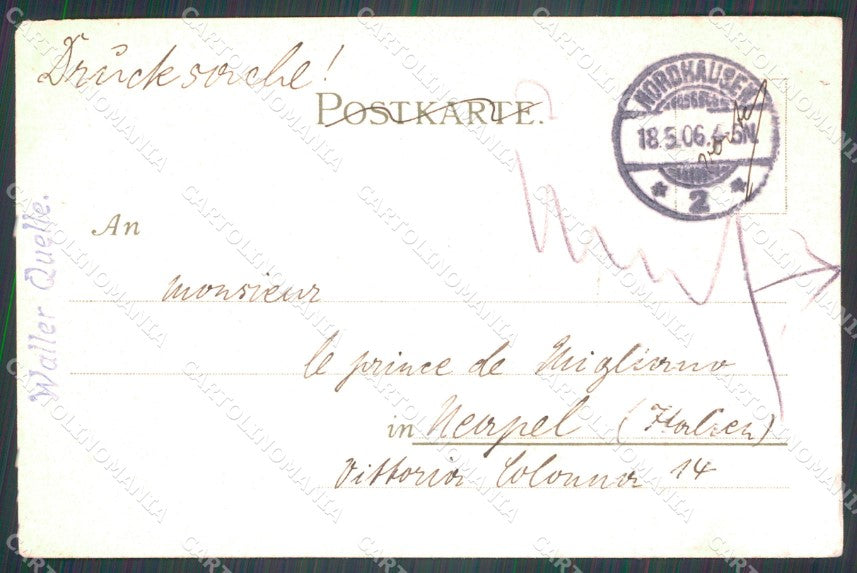 Drucksache!
POSTKARTE.
NORDHAUSEN
18.5.06.4-5N.
* 2 *
Walter Quelle.
An
Monsieur
le prince de Migliano
in Neapel (Italien)
Vittoria Colonna 14
CARTOLINOMANIA